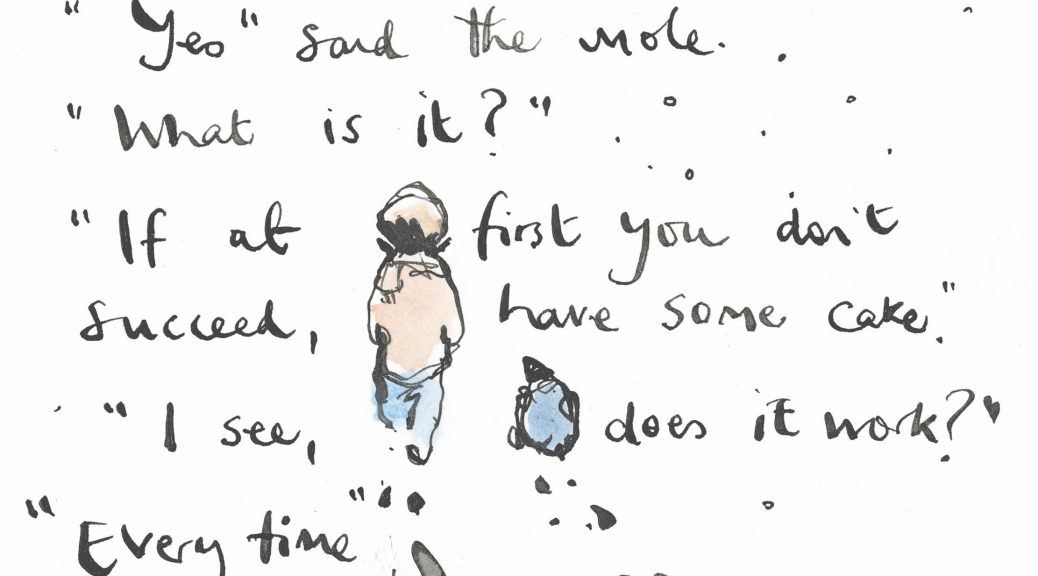 "Yes" said the mole.
"What is it?"
"If at first you don't
succeed, have some cake."
"I see, does it work?"
"Every time"